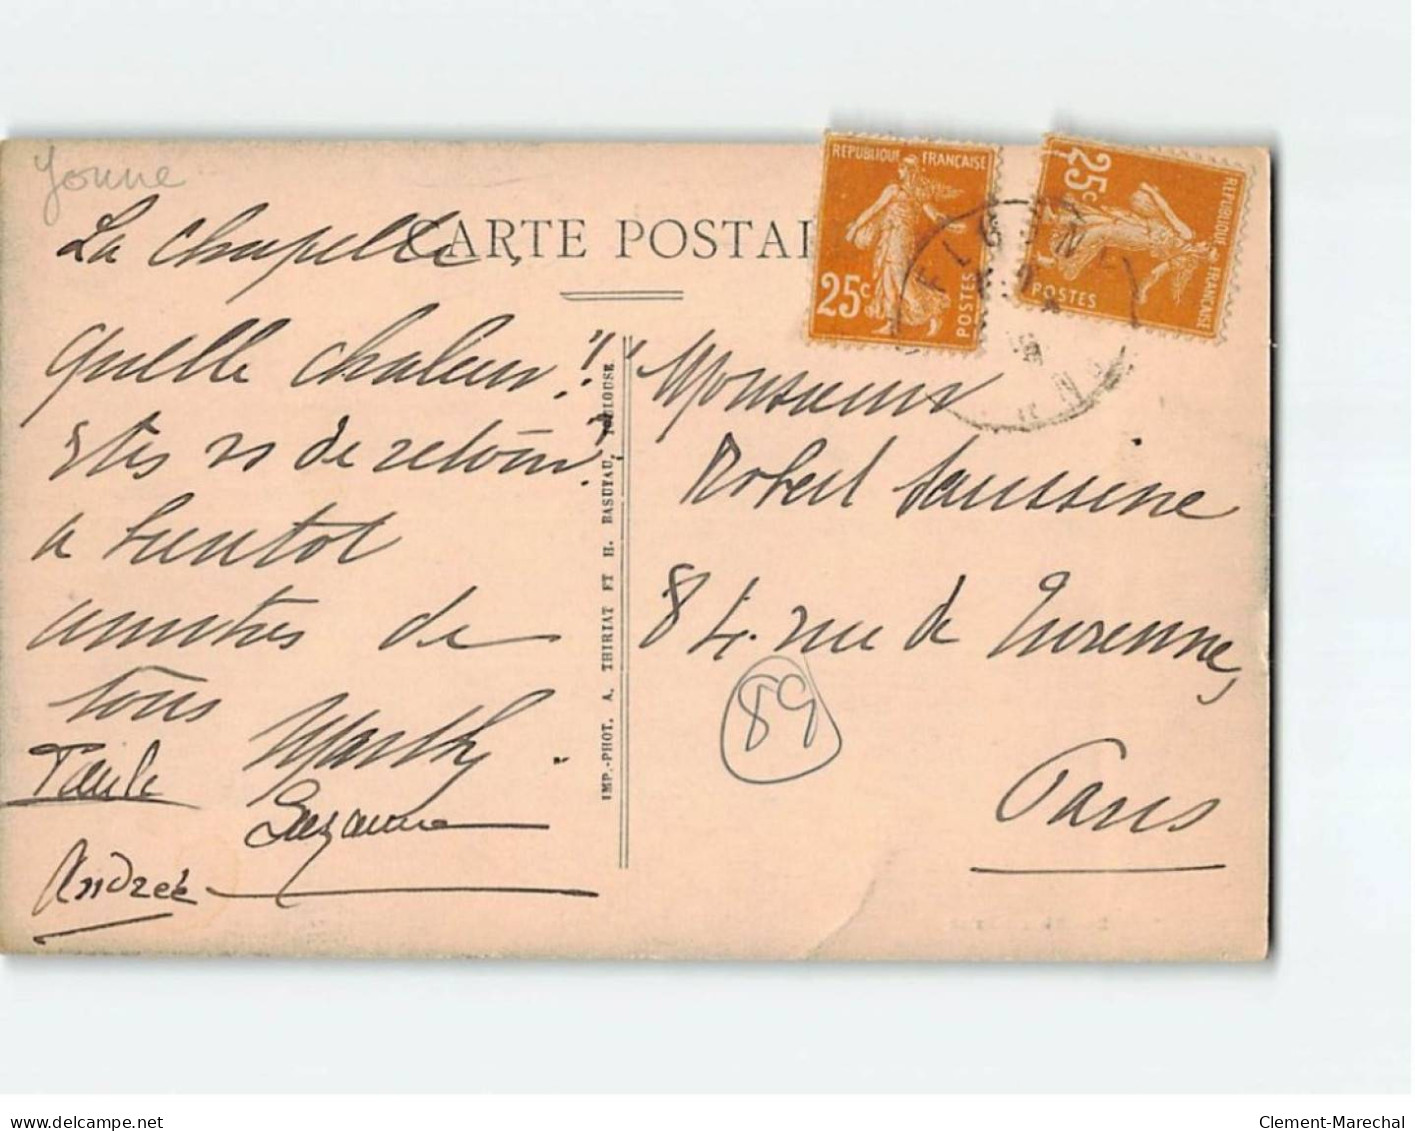 Yonne
La Chapelle
CARTE POSTAL
Quelle chaleur!!
Etes vs de retour?
a bientot
amitiés de
tous
Marthe.
Paule
Suzanne
Andrée
IMP.-PHOT. A. THIRIAT ET H. BASUYAU, TOULOUSE
REPUBLIQUE FRANÇAISE
25c
POSTES
REPUBLIQUE FRANÇAISE
25c
POSTES
FLOGNY
YONNE
Monsieur
Robert Saussine
84. rue de Turenne,
89
Paris
delcampe.net
Clement-Marechal